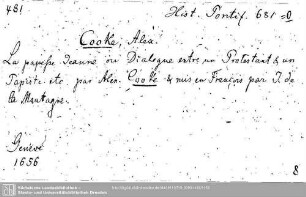 481
Hist. Pontif. 681 =0
Cooke, Alex.
La papesse Jeanne ou Dialogue entre un Protestant & un
Papiste etc par Alex. Cooke & mis en François par J. de
la Montagne.
Geneve
1656
8